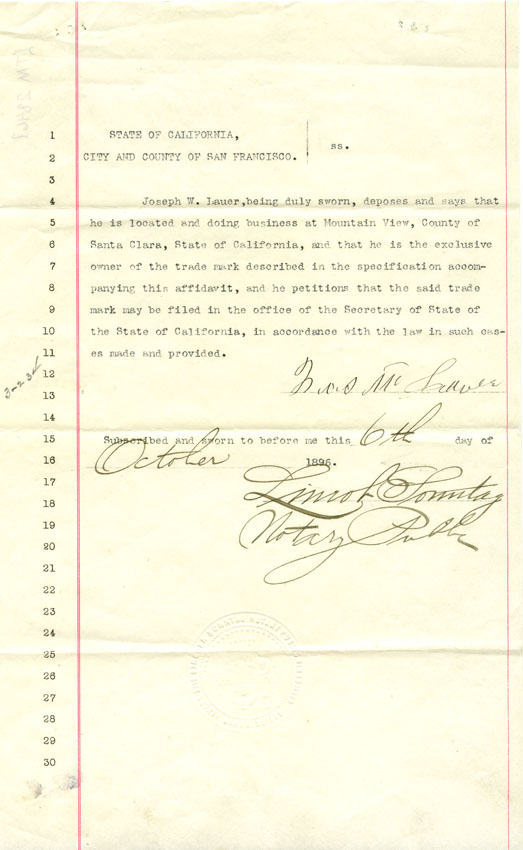 1 STATE OF CALIFORNIA,
ss.
2 CITY AND COUNTY OF SAN FRANCISCO.
3
4 Joseph W. Lauer,being duly sworn, deposes and says that
5 he is located and doing business at Mountain View, County of
6 Santa Clara, State of California, and that he is the exclusive
7 owner of the trade mark described in the specification accom-
8 panying this affidavit, and he petitions that the said trade
9 mark may be filed in the office of the Secretary of State of
10 the State of California, in accordance with the law in such cas-
11 es made and provided.
12
13
14
15 Subscribed and sworn to before me this 6th day of
16 October 1896.
17
18 Sonntag
19 Notary Public
20
21
22
23
24
25
26
27
28
29
30